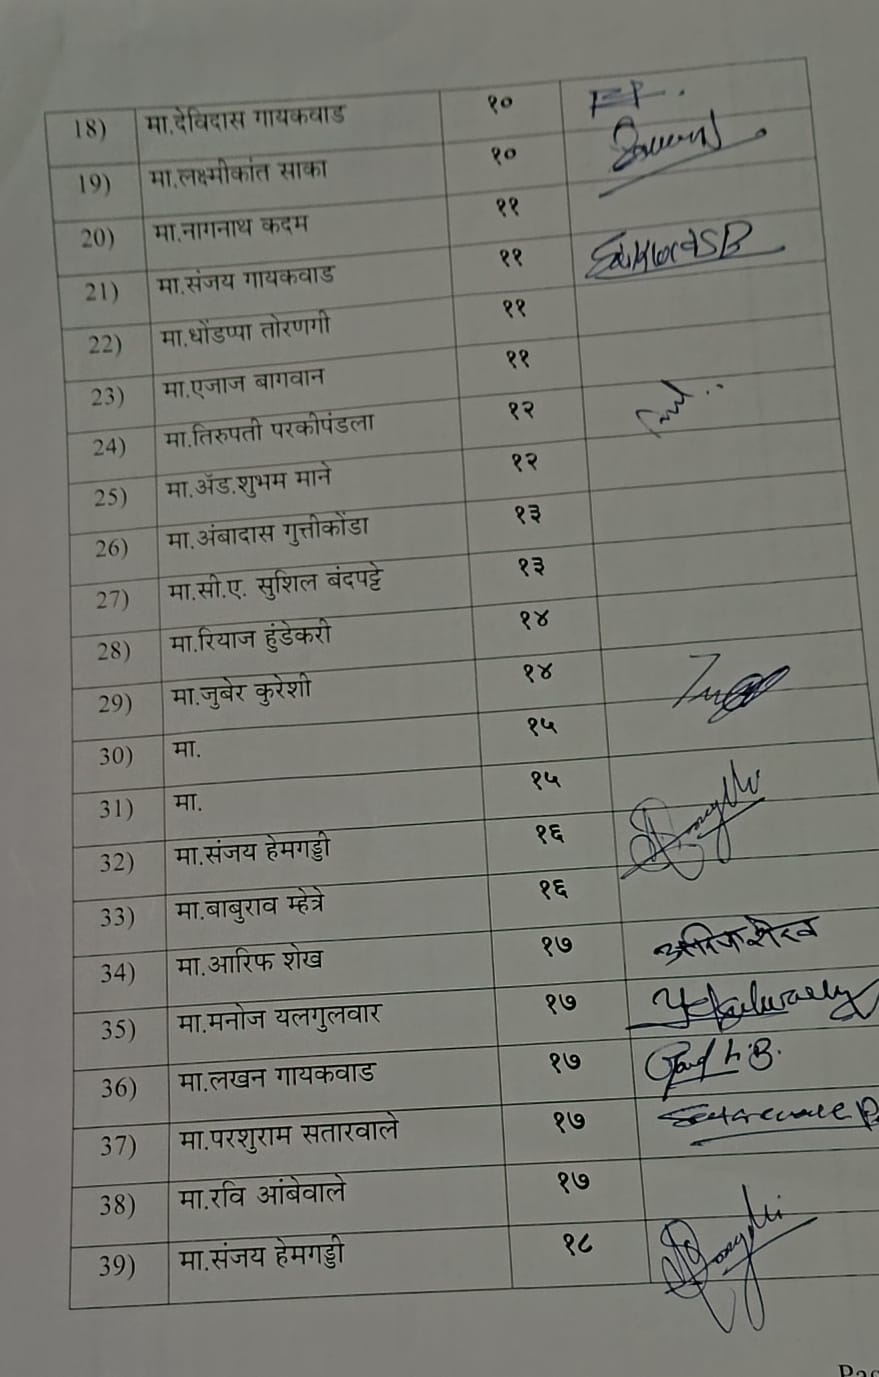 18) मा.देविदास गायकवाड १०
19) मा.लक्ष्मीकांत साका १०
20) मा.नागनाथ कदम ११
21) मा.संजय गायकवाड ११
22) मा.धोंडप्पा तोरणगी ११
23) मा.एजाज बागवान ११
24) मा.तिरुपती परकीपंडला १२
25) मा.ॲड.शुभम माने १२
26) मा.अंबादास गुत्तीकोंडा १३
27) मा.सी.ए. सुशिल बंदपट्टे १३
28) मा.रियाज हुंडेकरी १४
29) मा.जुबेर कुरेशी १४
30) मा. १५
31) मा. १५
32) मा.संजय हेमगड्डी १६
33) मा.बाबुराव म्हेत्रे १६
34) मा.आरिफ शेख १७ आरिफ शेख
35) मा.मनोज यलगुलवार १७
36) मा.लखन गायकवाड १७
37) मा.परशुराम सतारवाले १७
38) मा.रवि आंबेवाले १७
39) मा.संजय हेमगड्डी १८